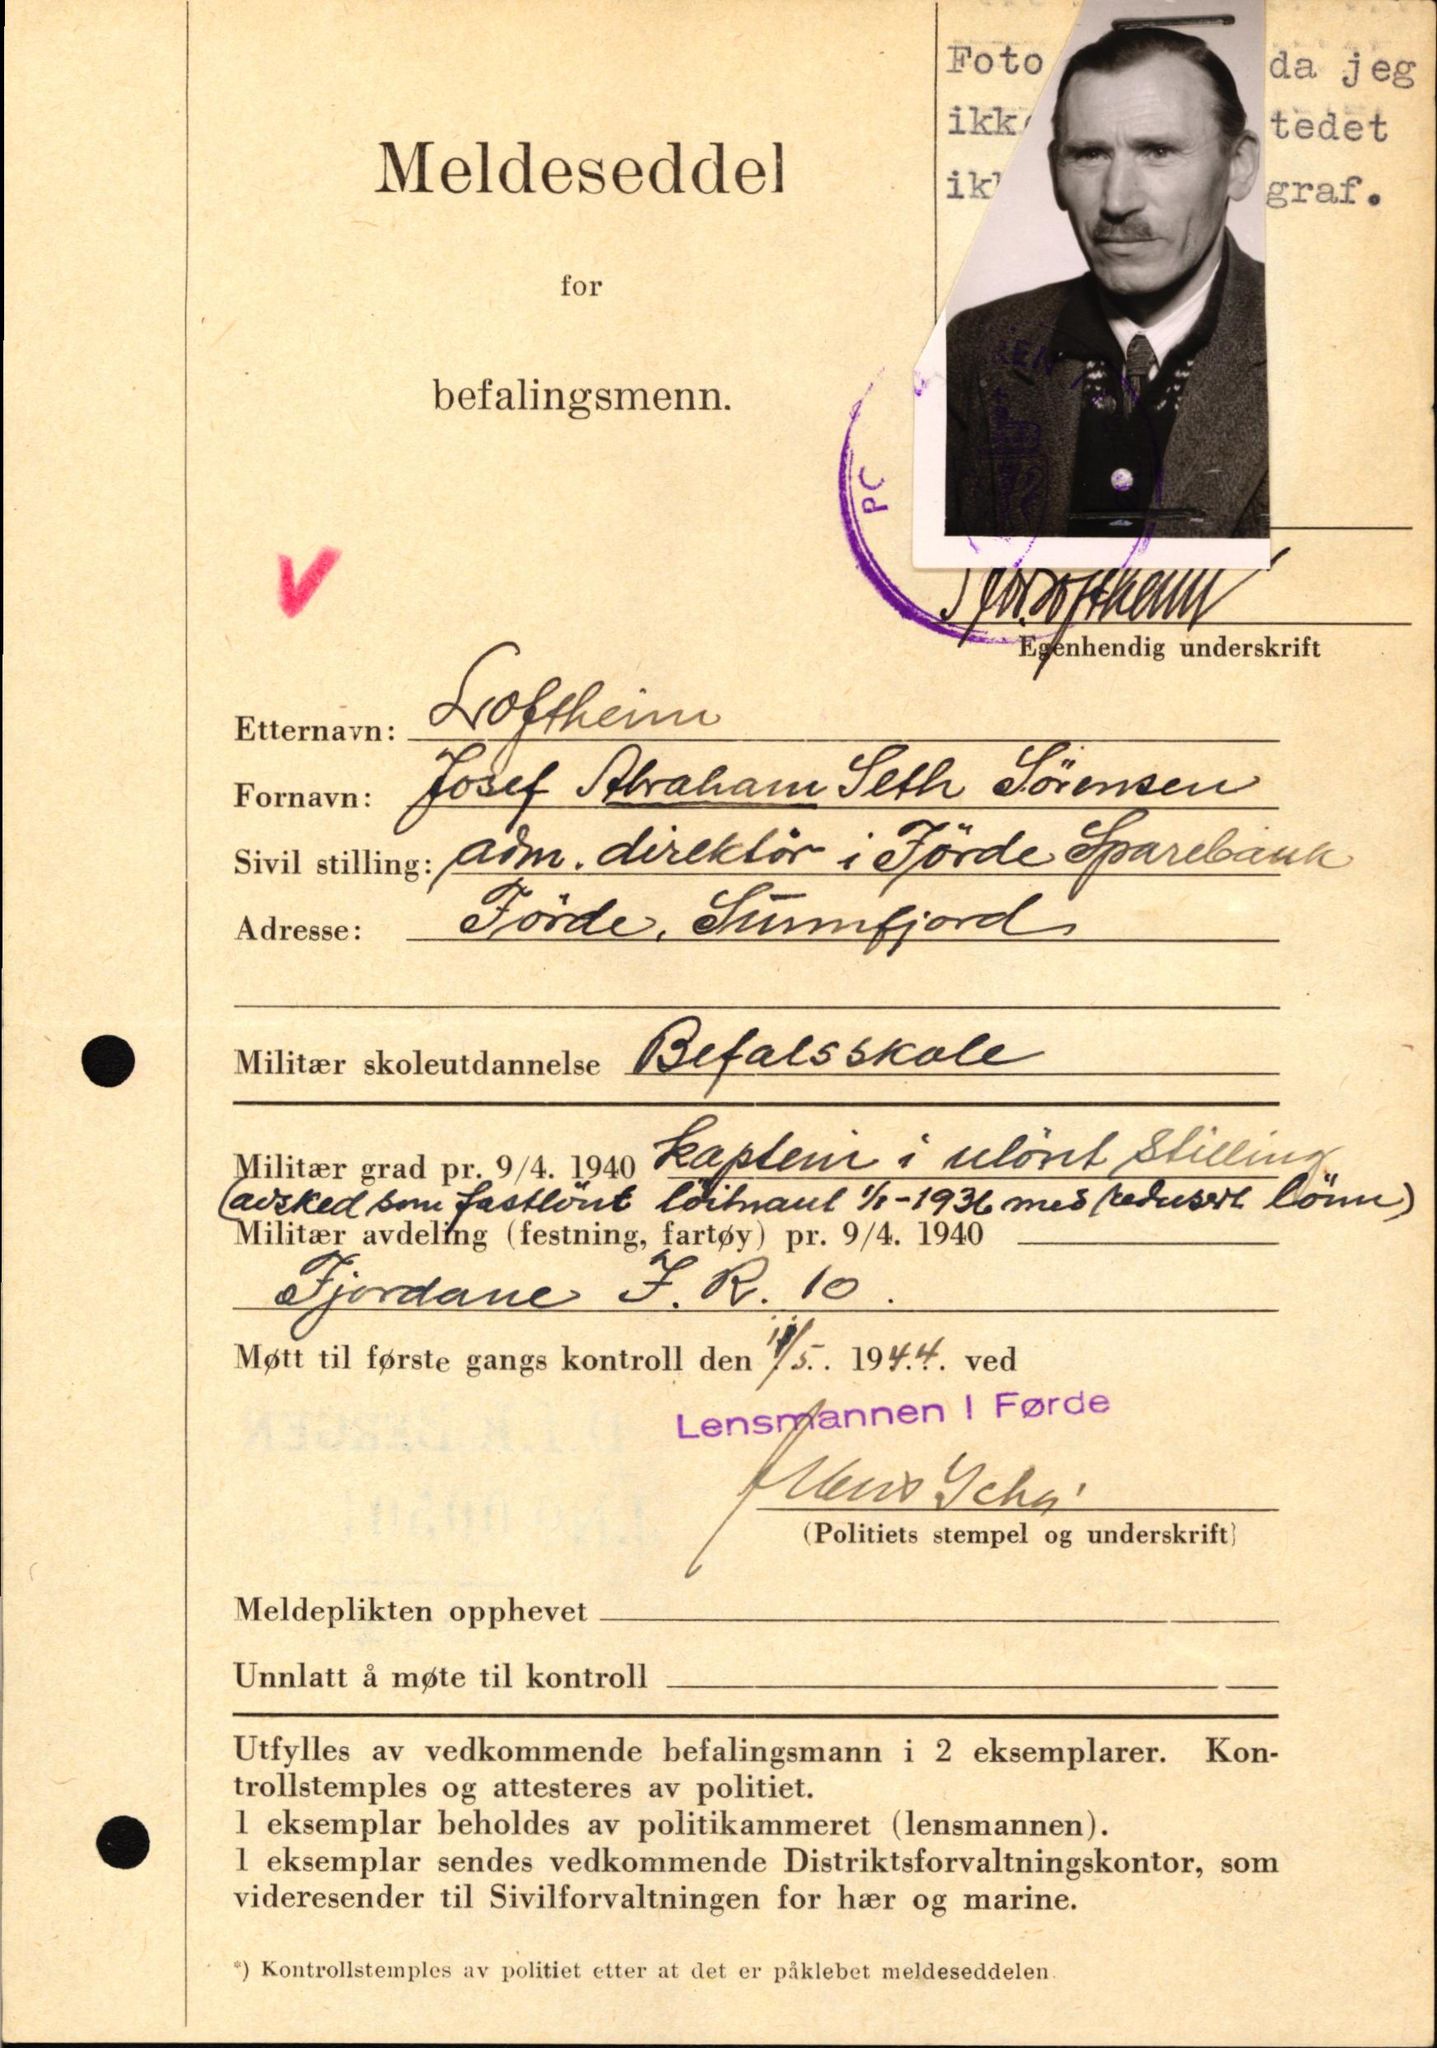 Foto da jeg
ikke tedet
graf.
Meldeseddel
for
befalingsmenn.
Egenhendig underskrift
Etternavn: Loftheim
Fornavn: Josef Abraham Seth Sörensen
Sivil stilling: adm. direktör i Förde Sparebank
Adresse: Förde, Sunnfjord
Militær skoleutdannelse Befalsskole
Militær grad pr. 9/4. 1940 kaptein i ulönt stilling
(avsked som fastlönt löitnant 1/1-1936 med redusert lönn)
Militær avdeling (festning, fartøy) pr. 9/4. 1940
Fjordane I. R. 10.
Møtt til første gangs kontroll den /5. 1944. ved
Lensmannen i Førde
(Politiets stempel og underskrift)
Meldeplikten opphevet
Unnlatt å møte til kontroll
Utfylles av vedkommende befalingsmann i 2 eksemplarer. Kon-
trollstemples og attesteres av politiet.
1 eksemplar beholdes av politikammeret (lensmannen).
1 eksemplar sendes vedkommende Distriktsforvaltningskontor, som
videresender til Sivilforvaltningen for hær og marine.
*) Kontrollstemples av politiet etter at det er påklebet meldeseddelen.